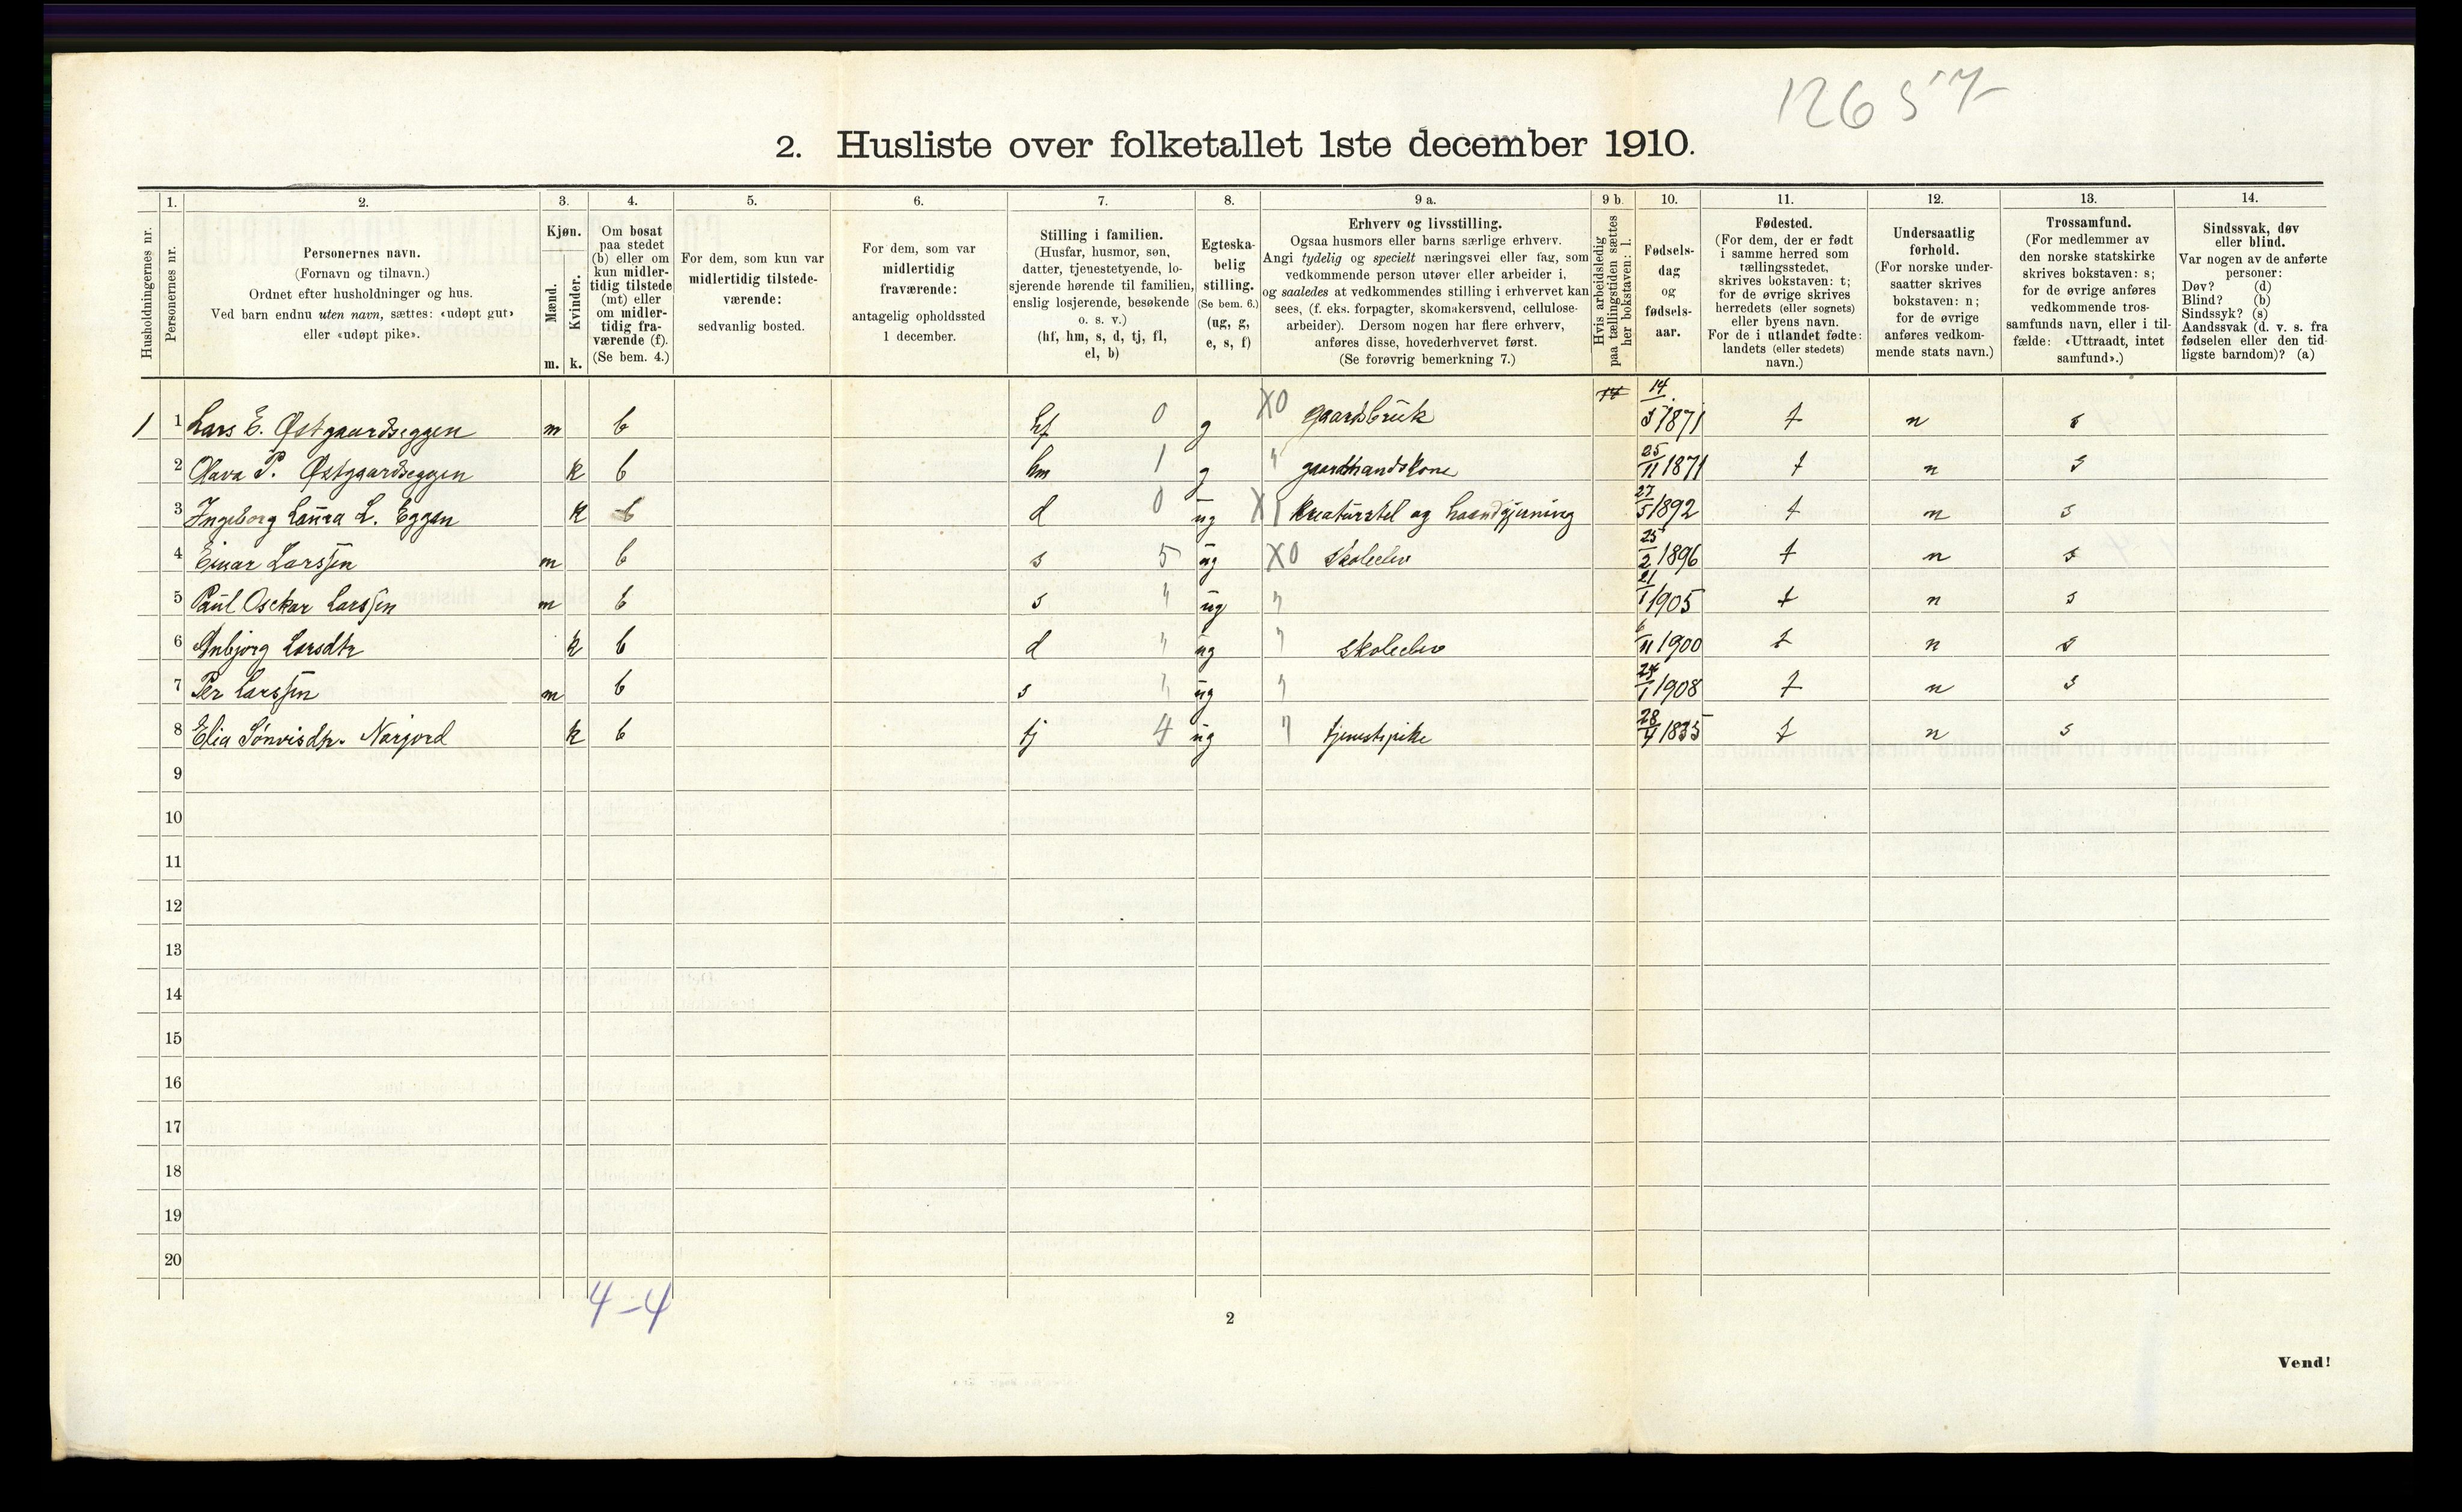 12657
2. Husliste over folketallet 1ste december 1910.
Husholdningernes nr.
1.
Personernes nr.
2.
Personernes navn.
(Fornavn og tilnavn.)
Ordnet efter husholdninger og hus.
Ved barn endnu uten navn, sættes: «udøpt gut»
eller «udøpt pike».
3.
Kjøn.
Mænd.
Kvinder.
m. k.
4.
Om bosat
paa stedet
(b) eller om
kun midler-
tidig tilstede
(mt) eller
om midler-
tidig fra-
værende (f).
(Se bem. 4.)
5.
For dem, som kun var
midlertidig tilstede-
værende:
sedvanlig bosted.
6.
For dem, som var
midlertidig
fraværende:
antagelig opholdssted
1 december.
7.
Stilling i familien.
(Husfar, husmor, søn,
datter, tjenestetyende, lo-
sjerende hørende til familien,
enslig losjerende, besøkende
o. s. v.)
(hf, hm, s, d, tj, fl,
el, b)
8.
Egteska-
belig
stilling.
(Se bem. 6.)
(ug, g,
e, s, f)
9 a.
Erhverv og livsstilling.
Ogsaa husmors eller barns særlige erhverv.
Angi tydelig og specielt næringsvei eller fag, som
vedkommende person utøver eller arbeider i,
og saaledes at vedkommendes stilling i erhvervet kan
sees, (f. eks. forpagter, skomakersvend, cellulose-
arbeider). Dersom nogen har flere erhverv,
anføres disse, hovederhvervet først.
(Se forøvrig bemerkning 7.)
9 b.
Hvis arbeidsledig
paa tællingstiden sættes
her bokstaven: l.
10.
Fødsels-
dag
og
fødsels-
aar.
11.
Fødested.
(For dem, der er født
i samme herred som
tællingsstedet,
skrives bokstaven: t;
for de øvrige skrives
herredets (eller sognets)
eller byens navn.
For de i utlandet fødte:
landets (eller stedets)
navn.)
12.
Undersaatlig
forhold.
(For norske under-
saatter skrives
bokstaven: n;
for de øvrige
anføres vedkom-
mende stats navn.)
13.
Trossamfund.
(For medlemmer av
den norske statskirke
skrives bokstaven: s;
for de øvrige anføres
vedkommende tros-
samfunds navn, eller i til-
fælde: «Uttraadt, intet
samfund».)
14.
Sindssvak, døv
eller blind.
Var nogen av de anførte
personer:
Døv? (d)
Blind? (b)
Sindssyk? (s)
Aandssvak (d. v. s. fra
fødselen eller den tid-
ligste barndom)? (a)
1 1 Lars E. Østgaardseggen m b hf 0 g X0 gaardsbruk 14/5 1871 t n s
2 Olava P. Østgaardseggen k b hm 1 g " gaardmandskone 25/11 1871 t n s
3 Ingeborg Laura L. Eggen k b d 0 ug X1 kreaturstel og haandgjerning 27/5 1892 t n s
4 Einar Larssen m b s 5 ug X0 skoleelev 25/2 1896 t n s
5 Paul Osckar Larssen m b s " ug " 21/1 1905 t n s
6 Anbjørg Larsdtr k b d " ug " skoleelev 6/11 1900 t n s
7 Per Larssen m b s " ug " 24/1 1908 t n s
8 Elia Sønvisdtr. Narjord k b tj 4 ug " tjenestepike 28/4 1835 t n s
9
10
11
12
13
14
15
16
17
18
19
20
4-4
2
Vend!